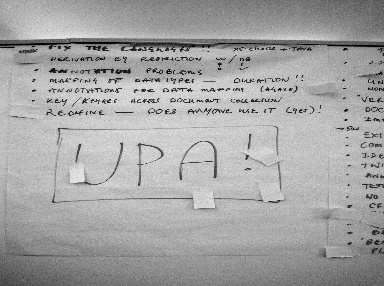 FIX THE LANGUAGES !! XS:CHOICE → JAVA
DERIVATION BY RESTRICTION w/ DB
ANNOTATION PROBLEMS
MAPPING OF DATA TYPES — DURATION !!
ANNOTATIONS FOR DATA MAPPING (AGAIN)
KEY / KEYREF ACROSS DOCUMENT COLLECTION
REDEFINE — DOES ANYONE USE IT (YET)!
UPA!
UN
NON
VER
DOC
EXI
COM
IDE
ANN
TEX
NO